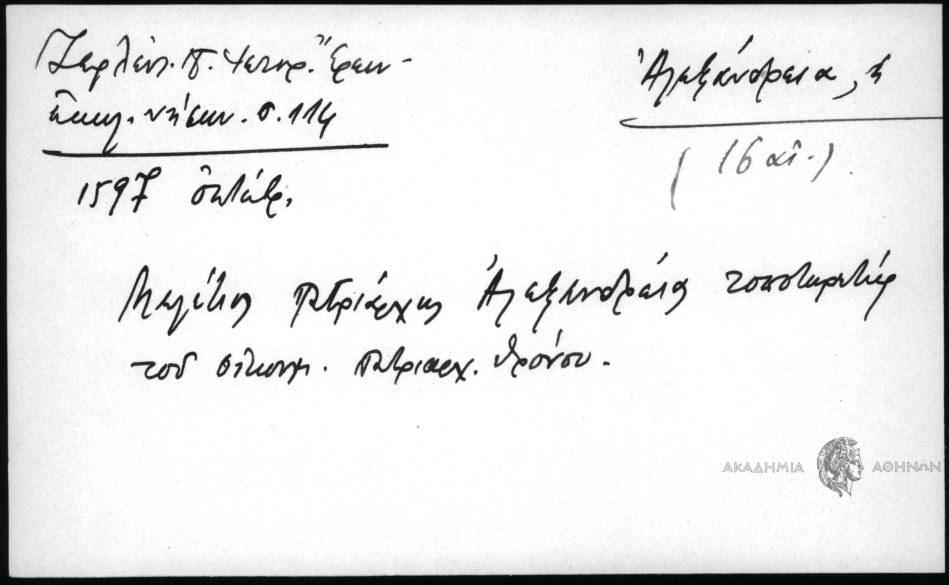 Ζερλέντ. Π. Ἱστορ. Ἔρευν.
ἐκκλ. νήσων. σ. 114
Ἀλεξάνδρεια, ἡ
(16 αἰ.)
1597 ὀκτώβρ.
Μελέτιος πατριάρχης Ἀλεξανδρείας τοποτηρητής
τοῦ οἰκουμ. πατριαρχ. θρόνου.
ΑΚΑΔΗΜΙΑ ΑΘΗΝΩΝ